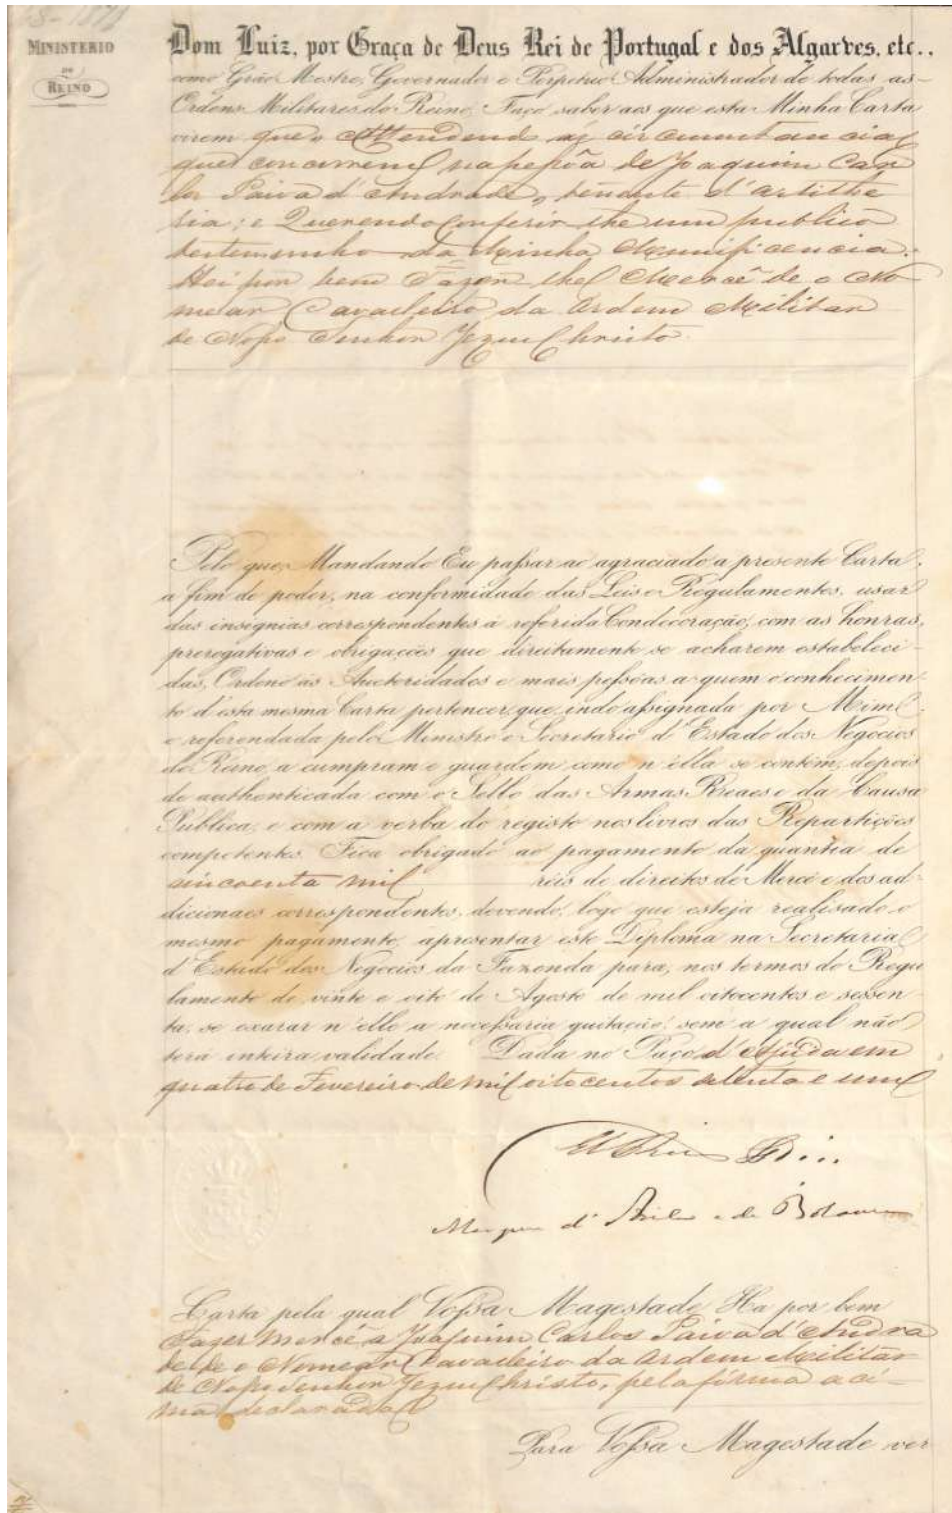 MINISTERIO
DO
REINO
Dom Luiz, por Graça de Deus Rei de Portugal e dos Algarves, etc.,
como Grão Mestre, Governador e Perpetuo Administrador de todas as
Ordens Militares do Reino, Faço saber aos que esta Minha Carta
virem que, Attendendo as circumstancias
que concorrem na peſsôa de Joaquim Car
los Paiva d'Andrade, tenente d'Artilhe
ria; e Querendo Conferir-lhe um publico
testemunho da Minha Munificencia:
Hei por bem Fazer-lhe Mercê de o No-
mear Cavalleiro da Ordem Militar
de Noſso Senhor Jezus Christo.
Pelo que, Mandando Eu paſsar ao agraciado a presente Carta,
a fim de poder, na conformidade das Leis e Regulamentos, usar
das insignias correspondentes á referida Condecoração, com as honras,
prerogativas e obrigações que direitamente se acharem estabeleci-
das, Ordeno ás Auctoridades e mais peſsôas a quem o conhecimen-
to d'esta mesma Carta pertencer, que, indo aſsignada por Mim
e referendada pelo Ministro e Secretario d'Estado dos Negocios
do Reino, a cumpram e guardem como n'ella se contém, depois
de authenticada com o Sello das Armas Reaes e da Causa
Publica, e com a verba do registo nos livros das Repartições
competentes. Fica obrigado ao pagamento da quantia de
sincoenta mil réis de direitos de Mercê e dos ad-
dicionaes correspondentes, devendo, logo que esteja realisado o
mesmo pagamento, apresentar este Diploma na Secretaria
d'Estado dos Negocios da Fazenda para, nos termos do Regu
lamento de vinte e oito de Agosto de mil oitocentos e sessen-
ta, se exarar n'elle a neceſsaria quitação, sem a qual não
terá inteira validade. Dada no Paço d'Ajuda em
quatro de Fevereiro de mil oitocentos setenta e um
El Rei
Marquez d'Avila e de Bolama
Carta pela qual Voſsa Magestade Ha por bem
Fazer Mercê a Joaquim Carlos Paiva d'Andra
de de o Nomear Cavalleiro da Ordem Militar
de Noſso Senhor Jezus Christo, pela fórma aci-
ma declarada
Para Voſsa Magestade ver